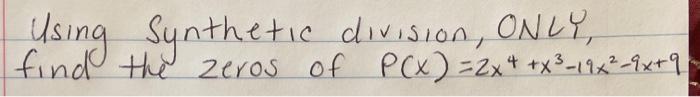 Using Synthetic division, ONLY,
find the zeros of P(x)=2x⁴+x³-19x²-9x+9